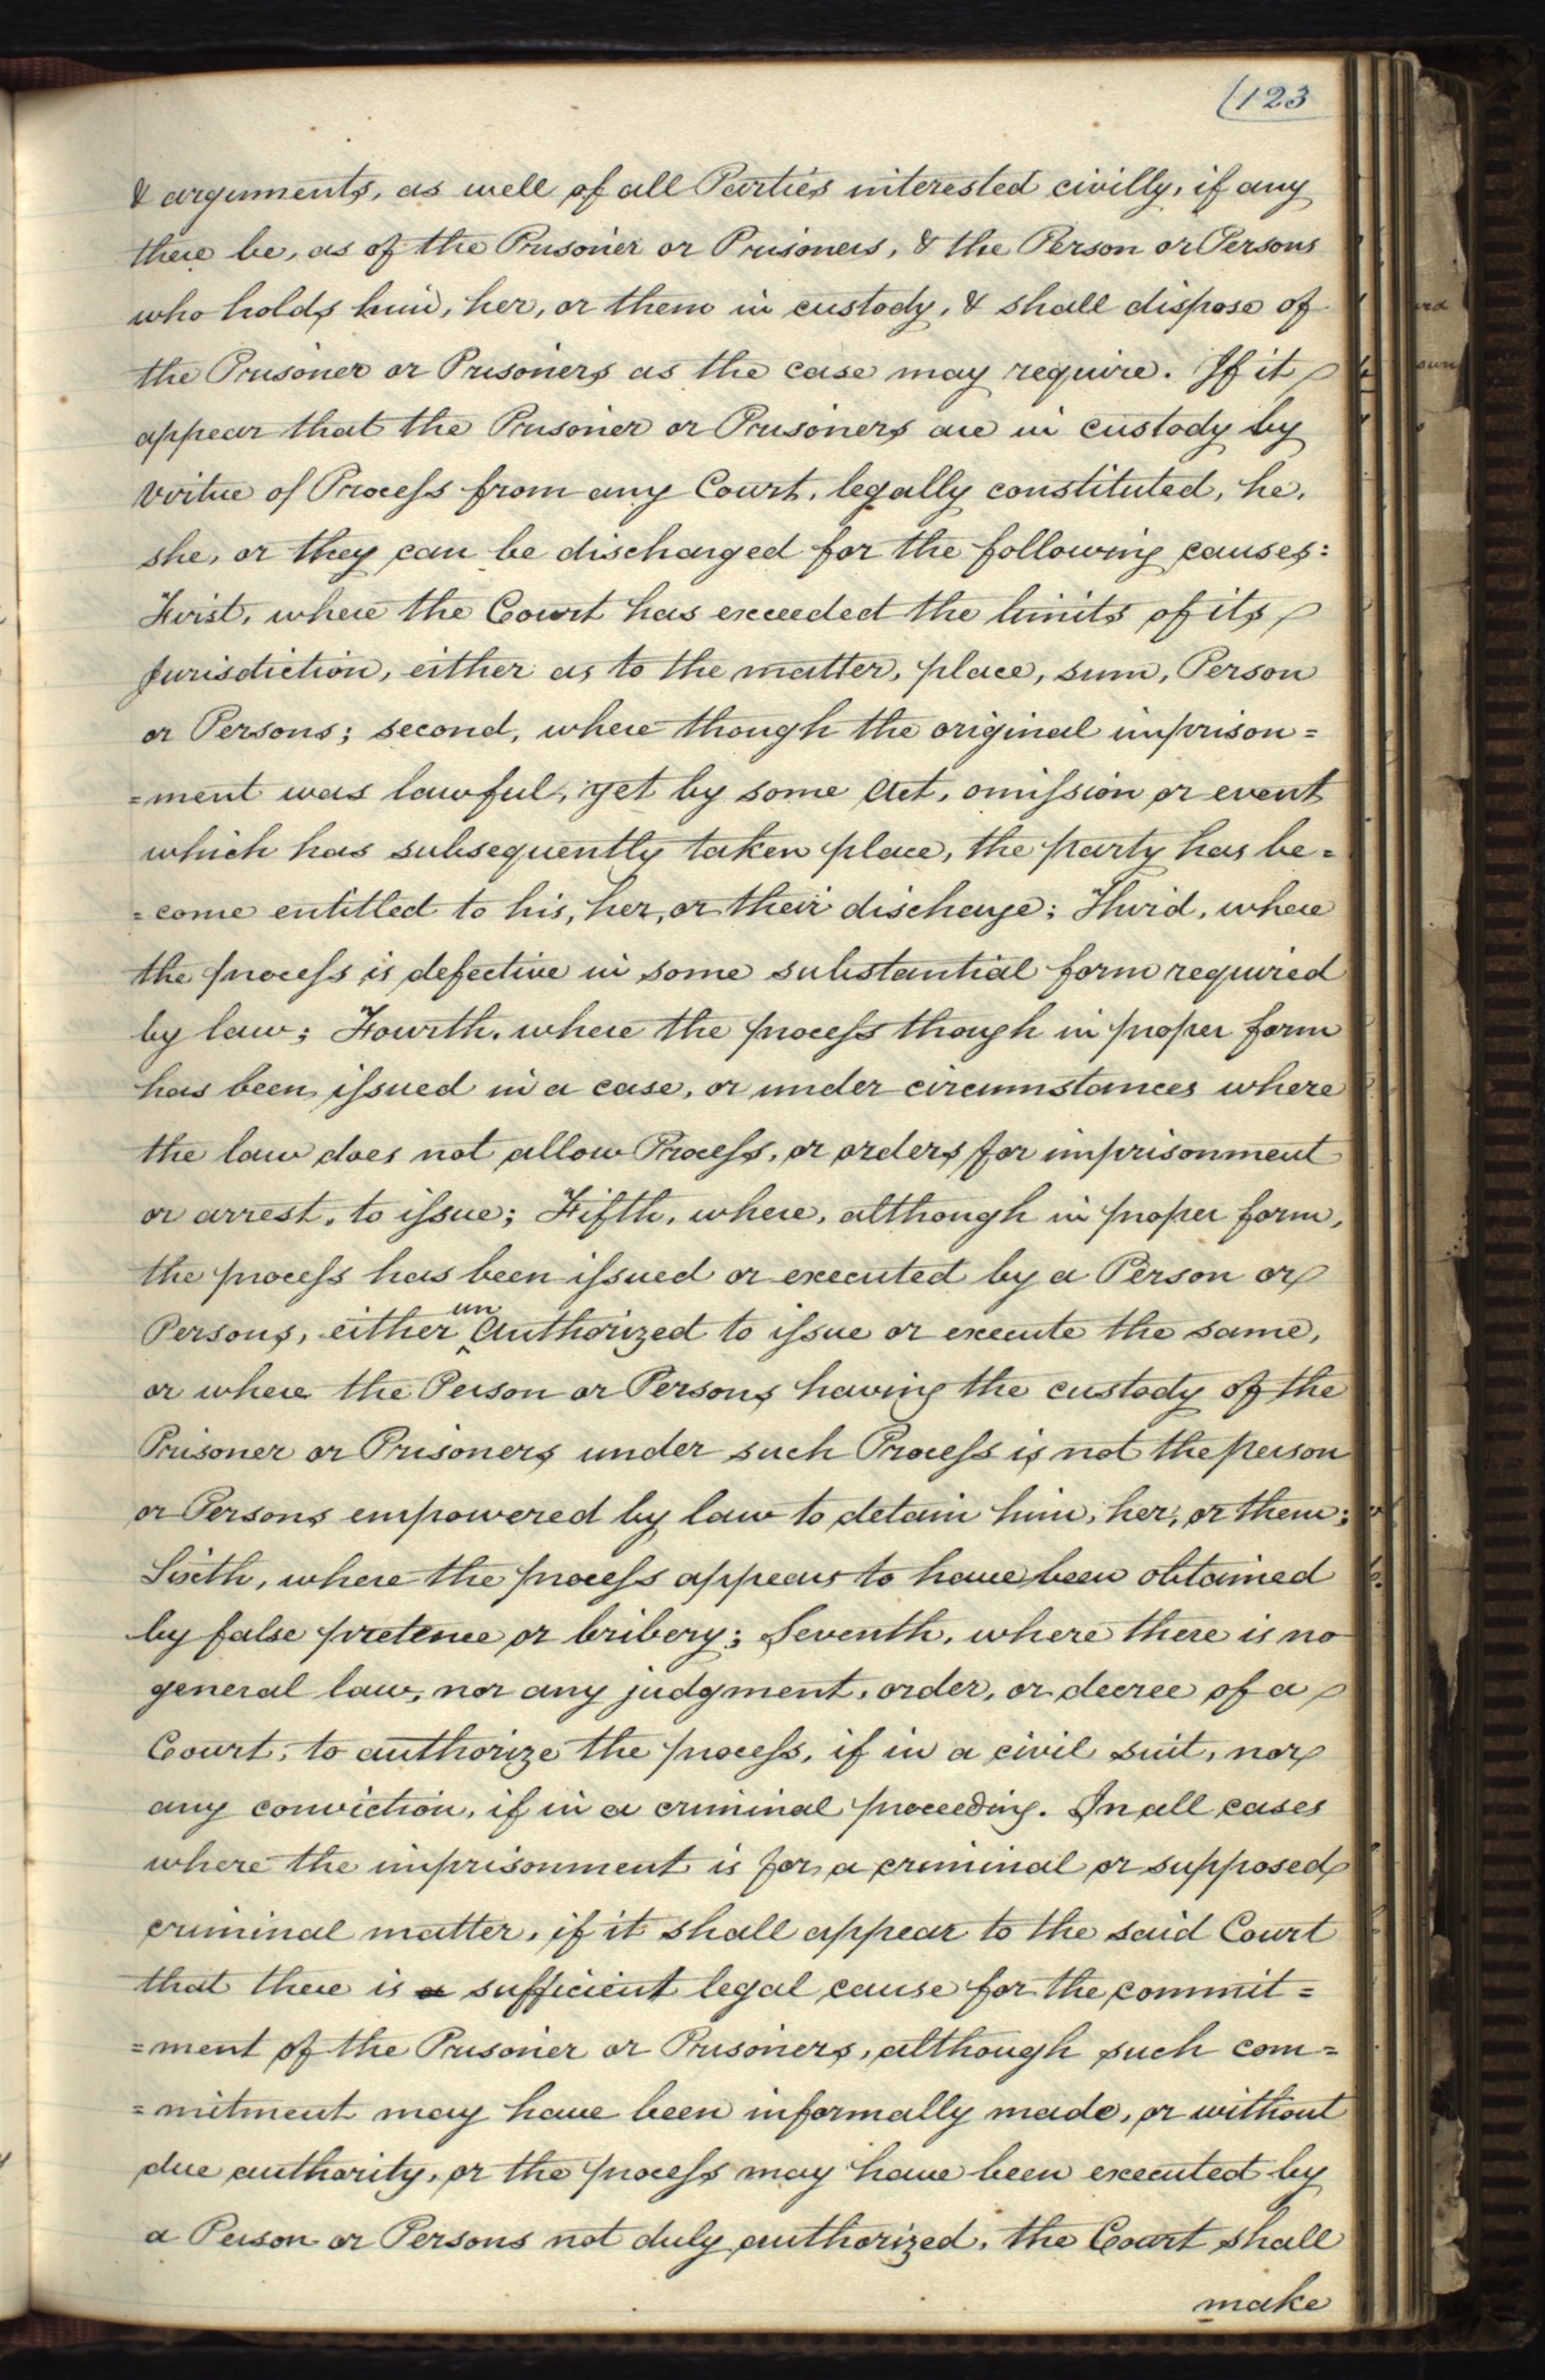 (123
& arguments, as well of all Parties interested civilly, if any
there be, as of the Prisoner or Prisoners, & the Person or Persons
who holds him, her, or them in custody, & shall dispose of
the Prisoner or Prisoners as the case may require. If it
appear that the Prisoner or Prisoners are in custody by
virtue of Process from any Court, legally constituted, he,
she, or they can be discharged for the following causes:
First, where the Court has exceeded the limits of its
jurisdiction, either as to the matter, place, sum, Person
or Persons; second, where though the original imprison=
=ment was lawful, yet by some Act, omission or event
which has subsequently taken place, the party has be=
=come entitled to his, her, or their discharge; Third, where
the process is defective in some substantial form required
by law; Fourth, where the process though in proper form
has been issued in a case, or under circumstances where
the law does not allow Process, or orders for imprisonment
or arrest, to issue; Fifth, where, although in proper form,
the process has been issued or executed by a Person or
Persons, either ^un Authorized to issue or execute the same,
or where the Person or Persons having the custody of the
Prisoner or Prisoners under such Process is not the person
or Persons empowered by law to detain him, her, or them;
Sixth, where the process appears to have been obtained
by false pretence or bribery; Seventh, where there is no
general law, nor any judgment, order, or decree of a
Court, to authorize the process, if in a civil suit, nor
any conviction, if in a criminal proceeding. In all cases
where the imprisonment is for a criminal or supposed
criminal matter, if it shall appear to the said Court
that there is a sufficient legal cause for the commit=
=ment of the Prisoner or Prisoners, although such com=
=mitment may have been informally made, or without
due authority, or the process may have been executed by
a Person or Persons not duly authorized, the Court shall
make